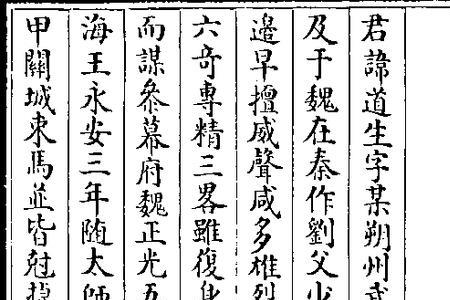 君諱道生字某朔州武
及于魏在秦作劉父少
邉早擅威聲咸多雄列
六奇專精三畧雖復身
而謀叅幕府魏正光五
海王永安三年随太師
甲關城東馬並皆尅